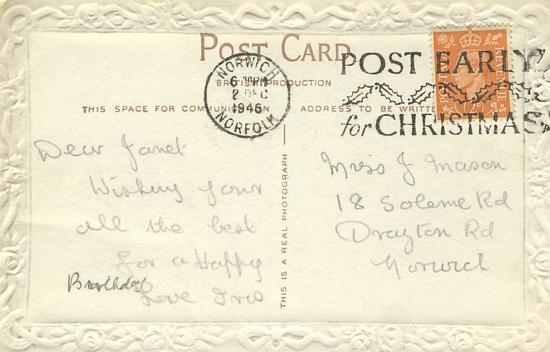 POST CARD
BRITISH PRODUCTION
NORWICH
6 PM
2 DEC
1946
NORFOLK
POST EARLY
for CHRISTMAS
THIS SPACE FOR COMMUNICATION
ADDRESS TO BE WRITTE
THIS IS A REAL PHOTOGRAPH
Dear Janet
Wishing your
all the best
for a Happy
Birthday
Love
Miss J Mason
18 Soleme Rd
Drayton Rd
Norwich